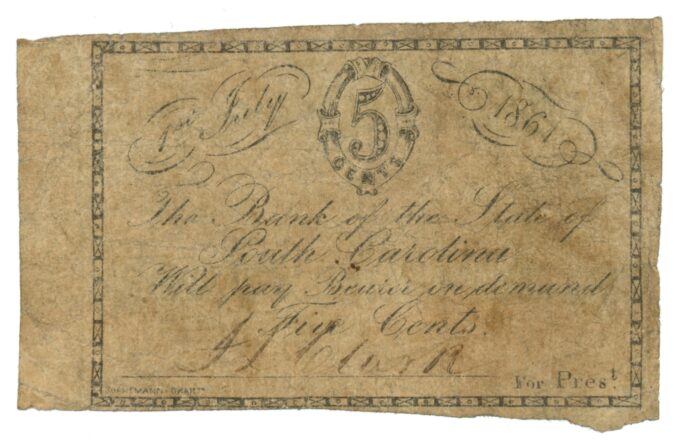 1st July
5
CENTS
1861
The Bank of the State of
South Carolina
Will pay Bearer on demand
Five Cents.
Clark
For Prest.